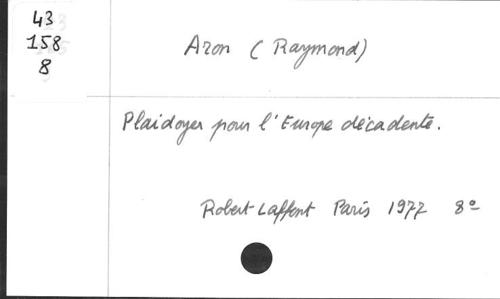 43
158
8
Aron (Raymond)
Plaidoyer pour l'Europe décadente.
Robert Laffont Paris 1977 8°